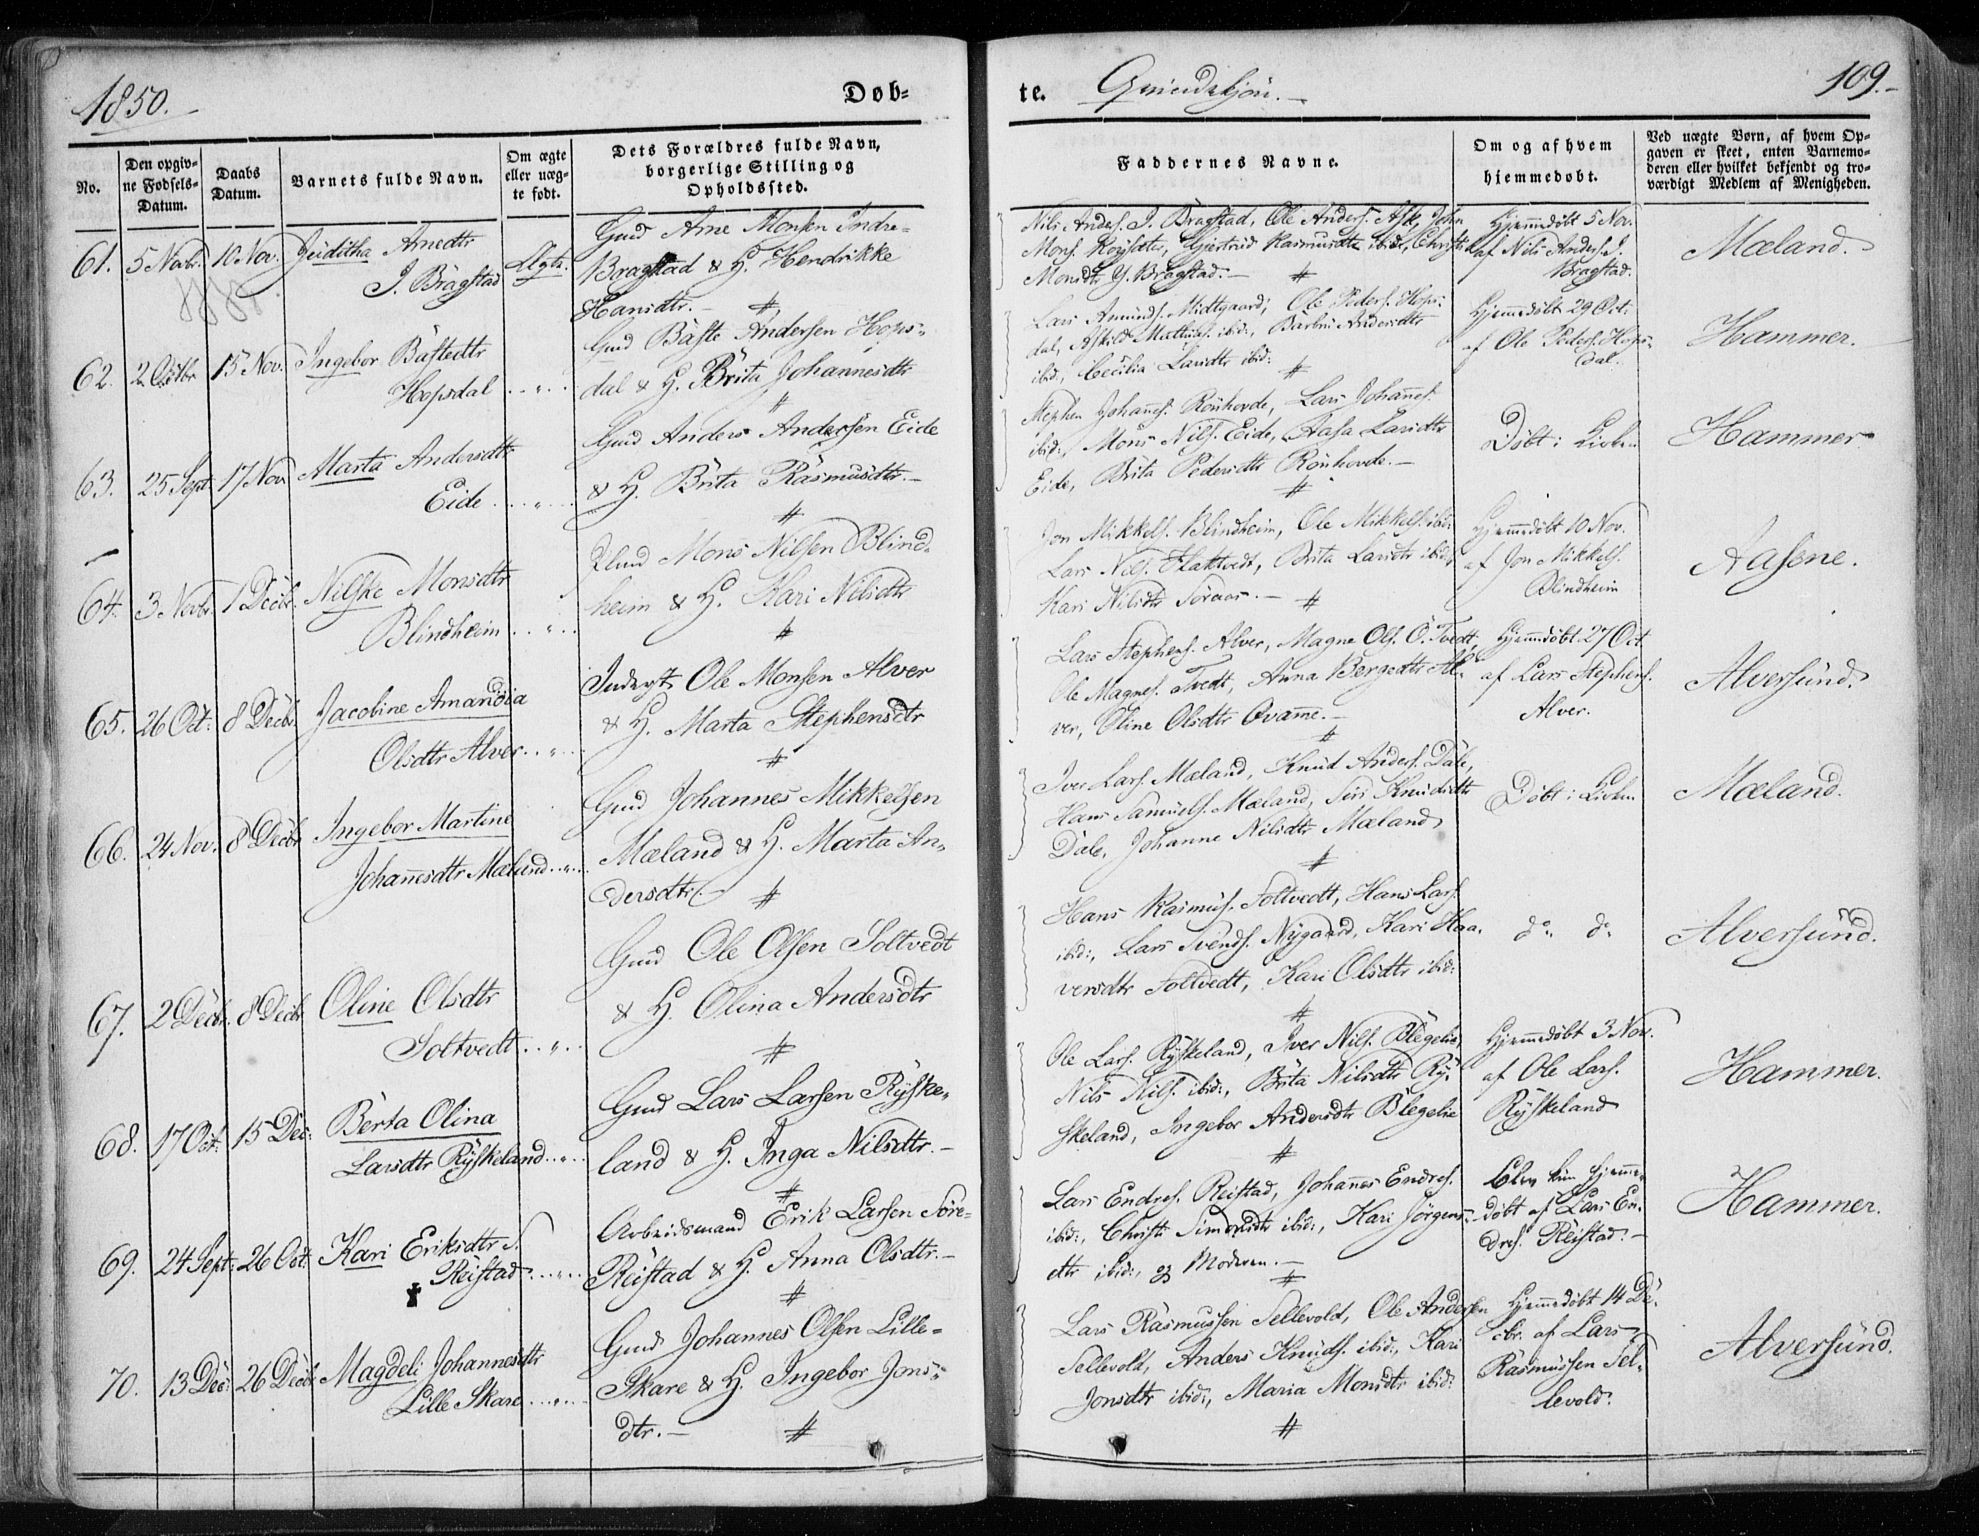 1850.
Døb-
te.
Qvindekjön.
109.
No.
Den opgiv-
ne Fødsels-
Datum.
Daabs
Datum.
Barnets fulde Navn.
Om ægte
eller uæg-
te født.
Dets Forældres fulde Navn,
borgerlige Stilling og
Opholdssted.
Faddernes Navne.
Om og af hvem
hjemmedøbt.
Ved uægte Børn, af hvem Op-
gaven er skeet, enten Barnemo-
deren eller hvilket bekjendt og tro-
værdigt Medlem af Menigheden.
61. 5 Novbr. 10 Nov. Juditha Arnedtr
I. Brägstad Ægte.
Gmd Arne Monsen Indre-
Bragstad & H. Hendrikke
Hansdtr. #
Nils Anders. I. Bragstad, Ole Anders. Ask, John
Mons. Röyslate, Gjertrud Rasmusdtr ibid:, Christi
Monsdtr Y. Bragstad. #
Hjemmedöbt 5 Nov.
af Nils Anders. I.
Bragstad.
Mæland.
62. 2 Octbr 15 Nov. Ingebor Båstedtr
Hopsdal
Gmd Båste Andersen Hops-
dal & H. Brita Johannesdtr
#
Lars Amunds. Midtgaard, Ole Peders. Hops-
dal, Askild Mathias. ibid:, Barbru Andersdtr
ibid:, Cecilia Larsdtr ibid:
#
Hjemmedöbt 29 Oct:
af Ole Peders. Hops-
dal.
Hammer.
63. 25 Sept 17 Nov Marta Andersdtr
Eide
Gmd Anders Andersen Eide
& H. Brita Rasmusdtr.
#
Stephen Johannes. Rönhovde, Lars Johannes.
ibid:, Mons Nils. Eide, Aasa Larsdtr
Eide, Brita Pedersdtr Rönhovde.
#
Döbt i Kirken
Hammer
64. 3 Novbr 1 Decbr. Nilske Monsdtr
Blindheim
Mons Nilsen Blind-
heim & H. Kari Nilsdtr
#
Jon Mikkels. Blindheim, Ole Mikkels. ibid:
Lars Nils. Flaktvedt, Brita Larsdtr ibid:,
Kari Nilsdtr Söraas. #
Hjemmedöbt 10 Nov.
af Jon Mikkels.
Blindheim
Aasene.
65. 26 Oct: 8 Decbr. Jacobine Amandia
Olsdtr Alver
Inderst Ole Monsen Alver
& H. Marta Stephensdtr
#
Lars Stephens. Alver, Magne Ols. Ö. Tvedt,
Ole Magnes. Tvedt, Anna Bergedtr Al-
ver, Oline Olsdtr Qvamme.
#
Hjemmedöbt 27 Oct
af Lars Stephens.
Alver.
Alversund.
66. 24 Nov. 8 Decbr Ingebor Martine
Johannesdtr Mæland
Gmd Johannes Mikkelsen
Mæland & H. Marta An-
dersdtr. #
Iver Lars. Mæland, Knud Anders. Dale,
Hans Samuels. Mæland, Siri Knudsdtr
Dale, Johanne Nilsdtr Mæland
#
Döbt i Kirken
Mæland.
67. 2 Decbr. 8 Decbr Oline Olsdtr
Soltvedt
Gmd Ole Olsen Soltvedt
& H. Olina Andersdtr
#
Hans Rasmus. Soltvedt, Hans Lars.
ibid:, Lars Svends. Nygaard, Kari Haa-
versdtr Soltvedt, Kari Olsdtr ibid:
#
do do
Alversund.
68. 17 Oct. 15 Dec: Berta Olina
Larsdtr Ryskeland
Gmd Lars Larsen Ryske-
land & H. Inga Nilsdtr.
#
Ole Lars. Ryskeland, Iver Nils. Blegelie,
Nils Nils. ibid:, Brita Nilsdtr Ry-
skeland, Ingebor Andersdtr Blegelie
#
Hjemmedöbt 3 Nov.
af Ole Lars.
Ryskeland
Hammer.
69. 24 Sept: 26 Oct: Kari Eriksdtr S.
Reistad
Arbeidsmand Erik Larsen Söre-
Reistad & H. Anna Olsdtr.
#
Lars Endres. Reistad, Johannes Endres.
ibid:, Christi Simonsdtr ibid:, Kari Jörgens-
dtr ibid:, og Moderen.
#
Blev kun hjemme-
döbt af Lars En-
dres. Reistad.
Hammer.
70. 13 Dec: 26 Decbr Magdeli Johannesdtr
Lille Skare
Gmd Johannes Olsen Lille-
Skare & H. Ingebor Jons-
dtr. #
Lars Rasmussen Sellevold, Ole Andersen
Sellevold, Anders Knuds. ibid:, Kari
Jonsdtr ibid:, Maria Monsdtr ibid:
#
Hjemmedöbt 14 De-
cbr. af Lars
Rasmussen Sel-
levold.
Alversund.